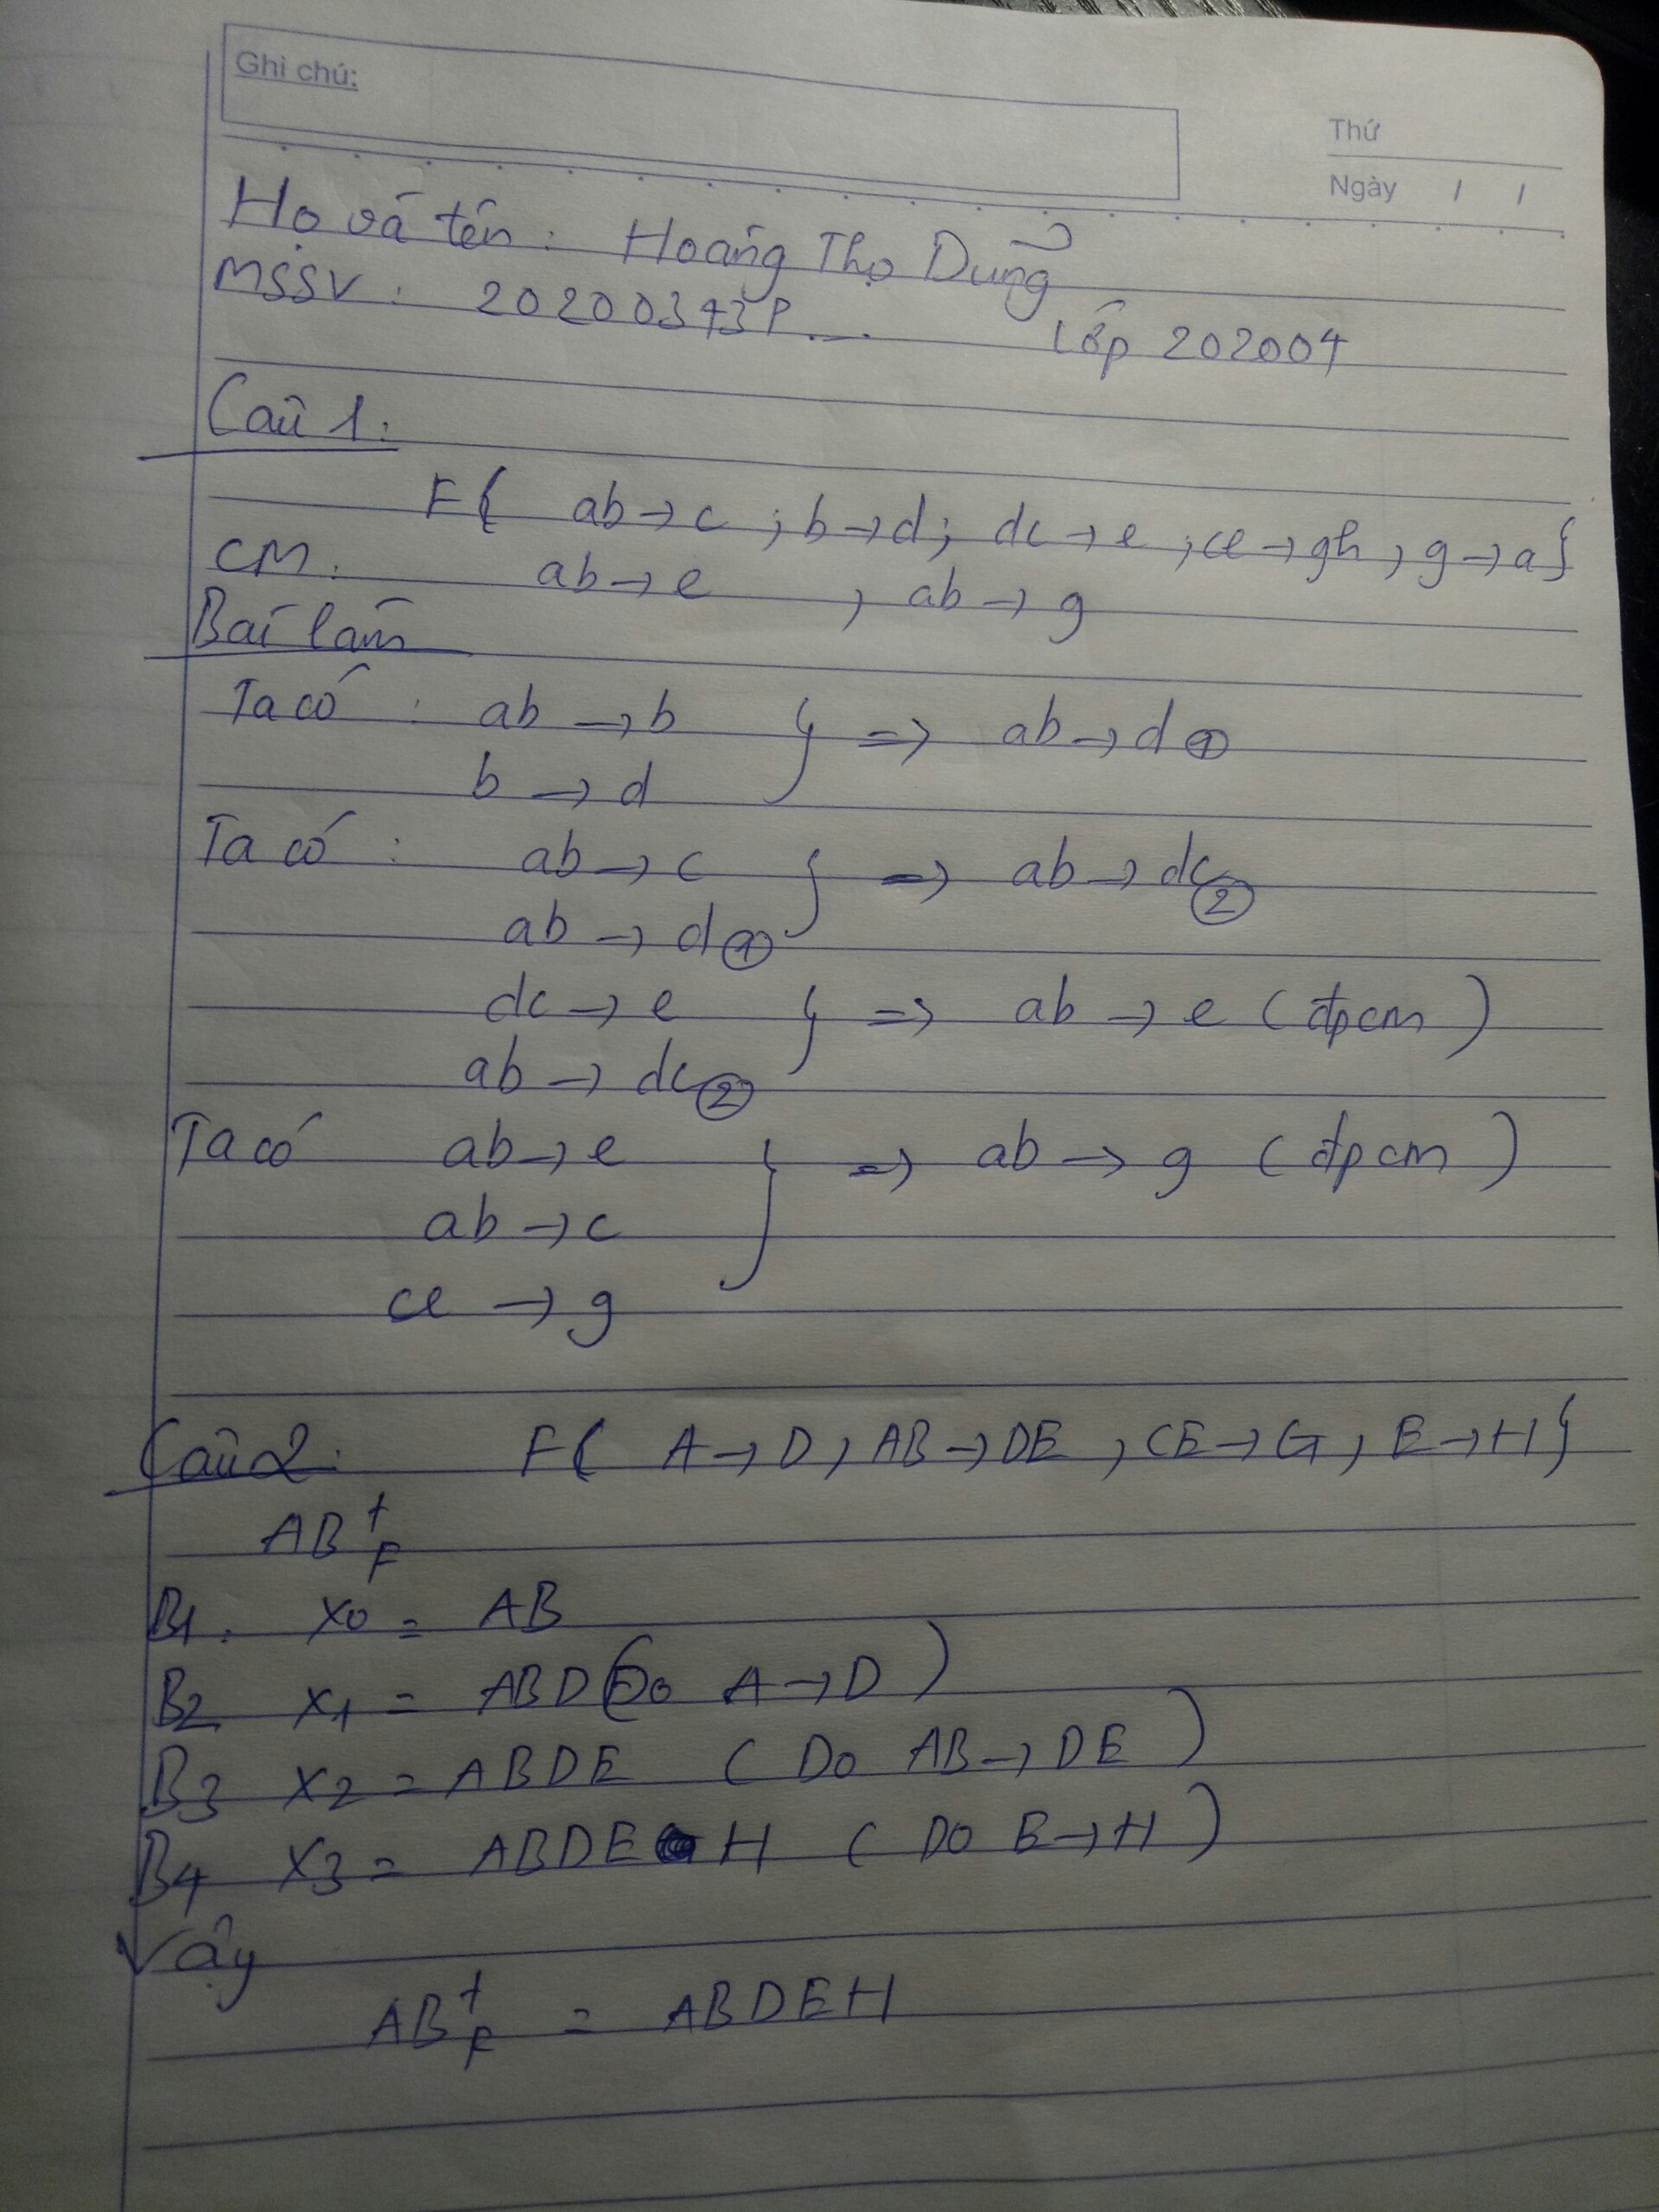 Ghi chú:
Thứ
Ngày / /
Họ và tên : Hoàng Thọ Dũng
MSSV : 20200343P... Lớp 202004
Câu 1:
F{ ab → c ; b → d ; dc → e ; ce → gh , g → a }
CM : ab → e , ab → g
Bài làm
Ta có : ab → b } => ab → d ①
b → d
Ta có : ab → c } => ab → dc ②
ab → d ①
dc → e } => ab → e ( đpcm )
ab → dc ②
Ta có ab → e } => ab → g ( đpcm )
ab → c
ce → g
Câu 2: F{ A → D , AB → DE , CE → G , E → H }
AB⁺F
B1 : X0 = AB
B2 X1 = ABD ( Do A → D )
B3 X2 = ABDE ( Do AB → DE )
B4 X3 = ABDE H ( DO E → H )
Vậy
AB⁺F = ABDEH